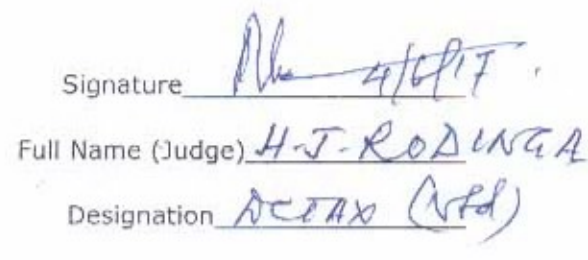 Signature 4/6/17.
Full Name (Judge) H-J-RODINGA
Designation